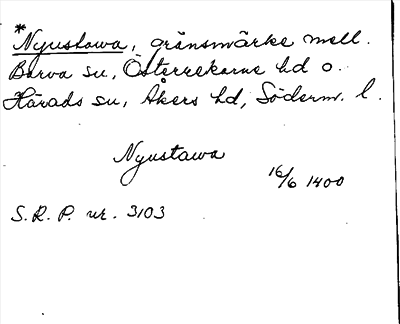 *
Nyustawa, gränsmärke mell.
Barva sn, Österrekarne hd o.
Härads sn, Åkers hd, Söderm. l.
Nyustawa
16/6 1400
S.R.P. nr. 3103